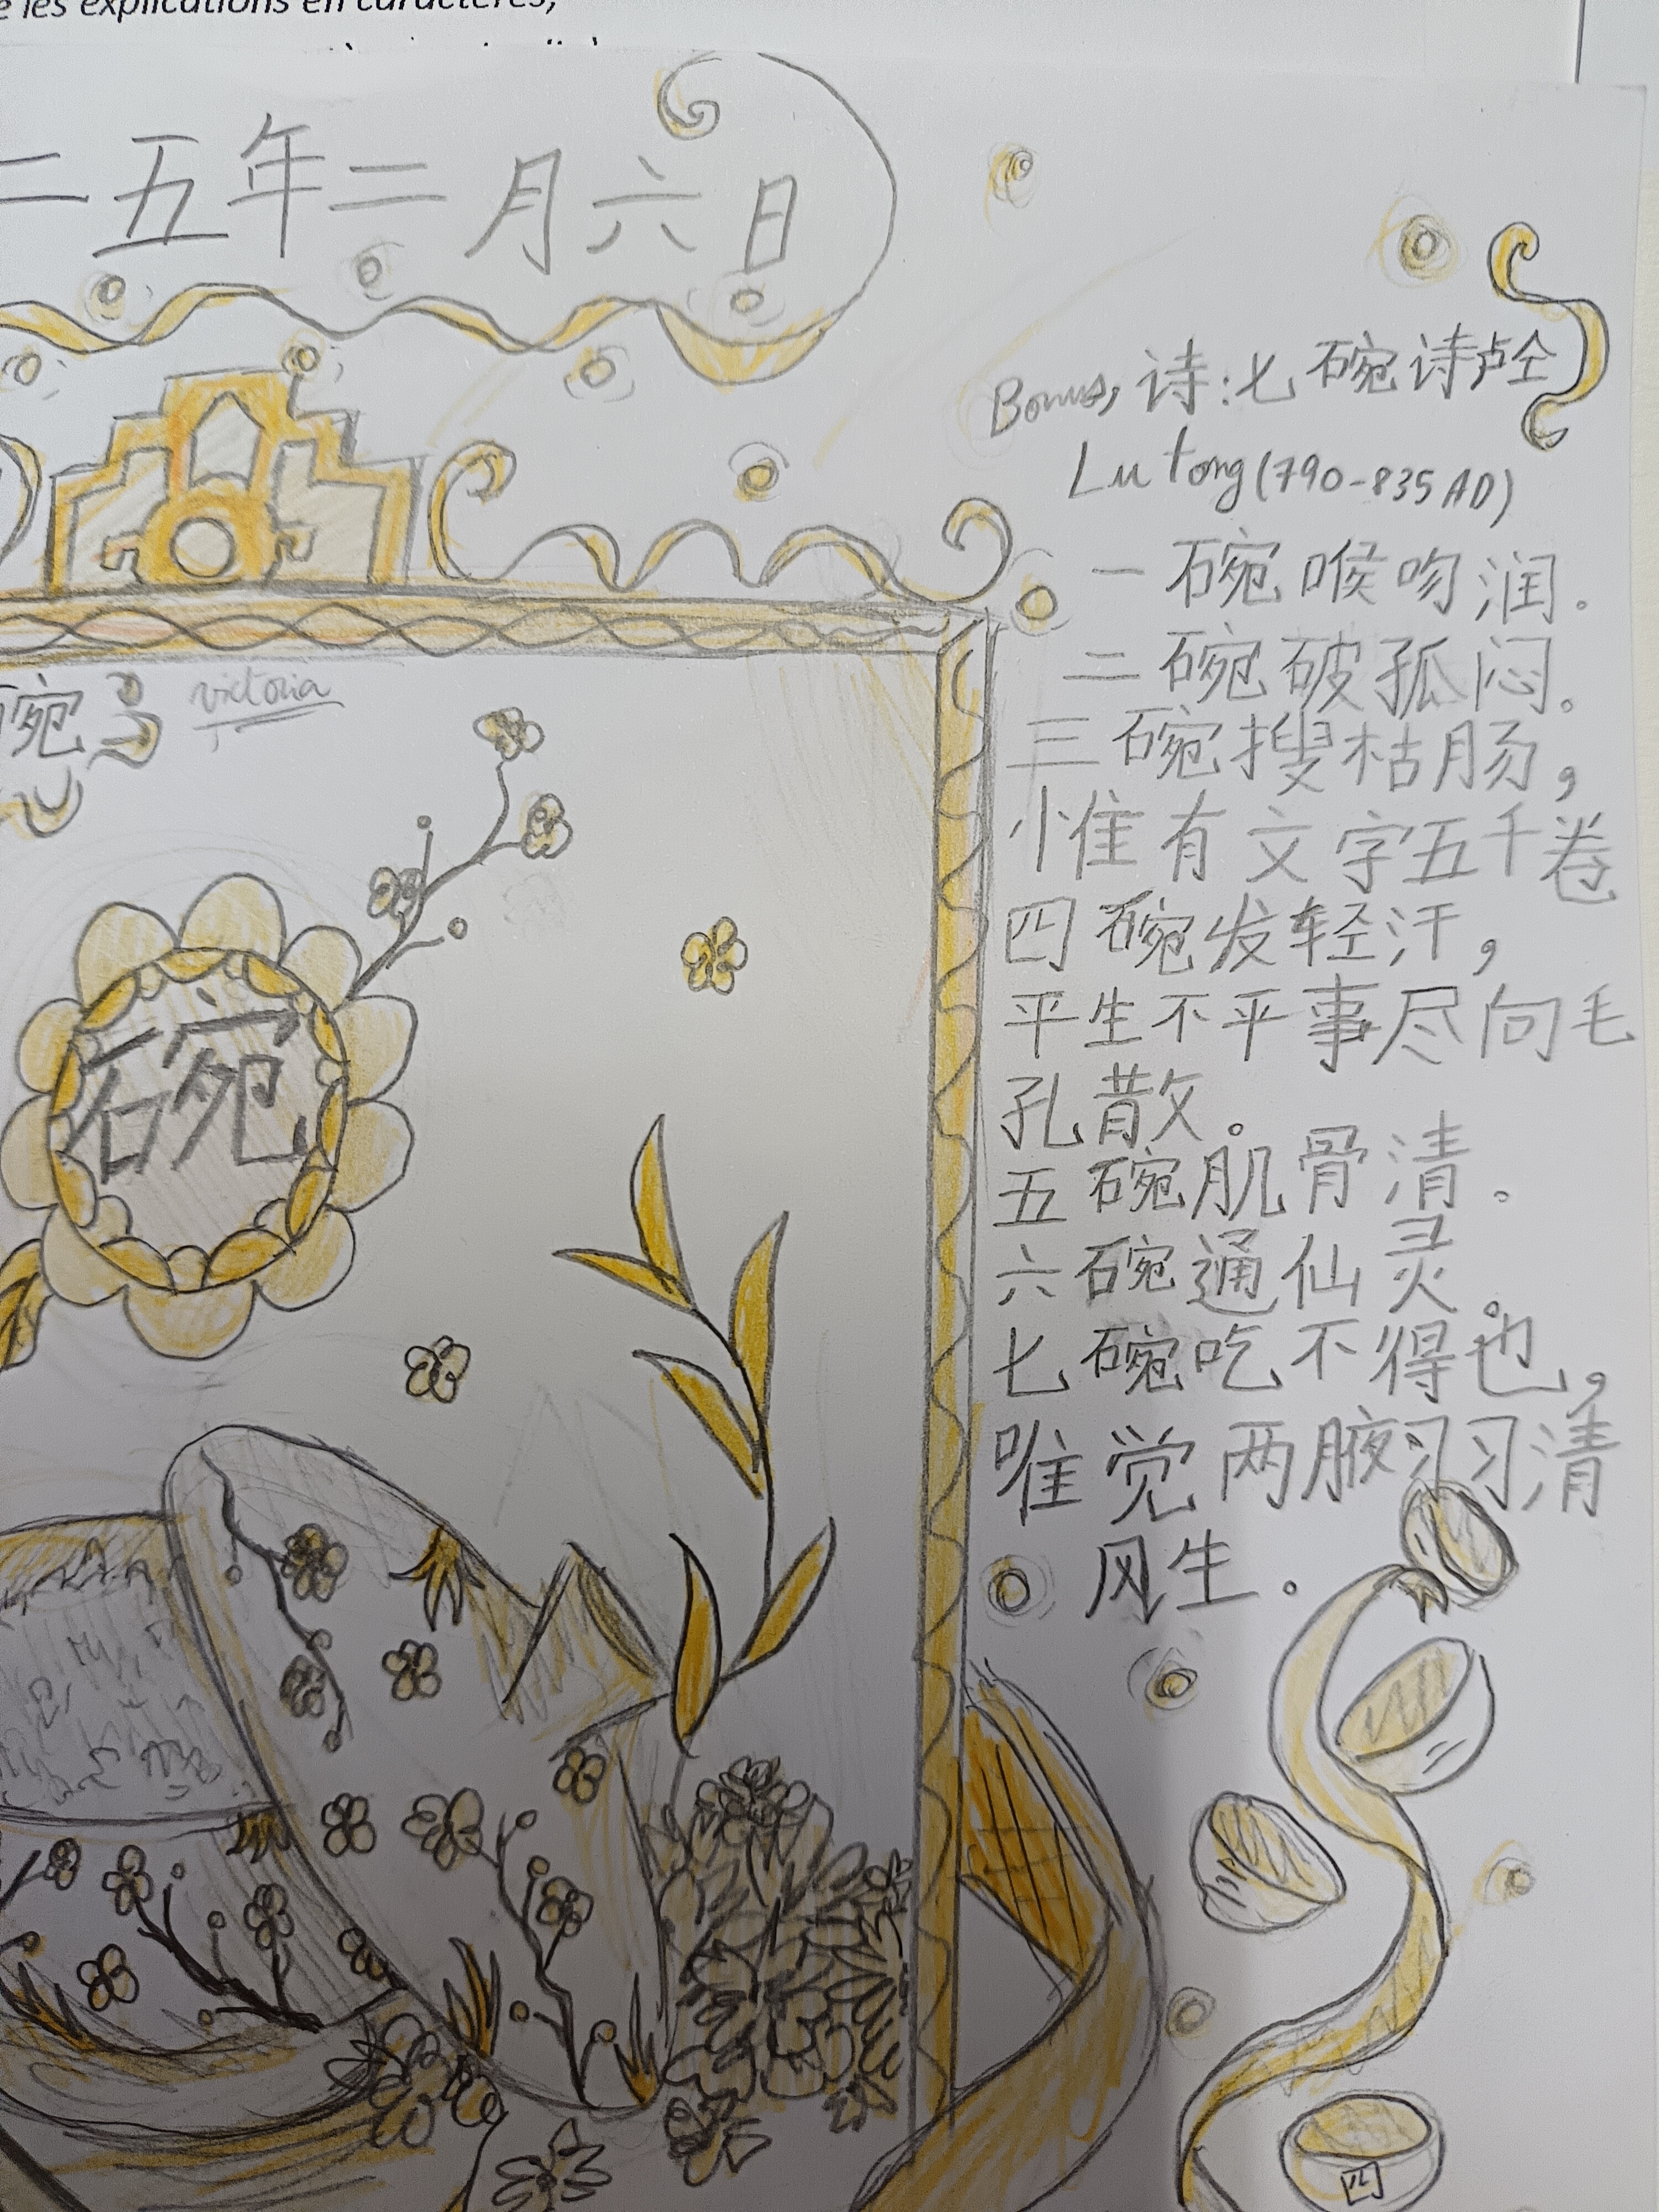 e les explications en caractères,
二五年二月六日
Bonus, 诗:七碗诗卢仝
Lu tong (790-835 AD)
一碗喉吻润.
二碗破孤闷。
三碗搜枯肠,
惟有文字五千卷
四碗发轻汗,
平生不平事尽向毛
孔散。
五碗肌骨清。
六碗通仙灵。
七碗吃不得也,
唯觉两腋习习清
风生.
碗
victoria
碗
四